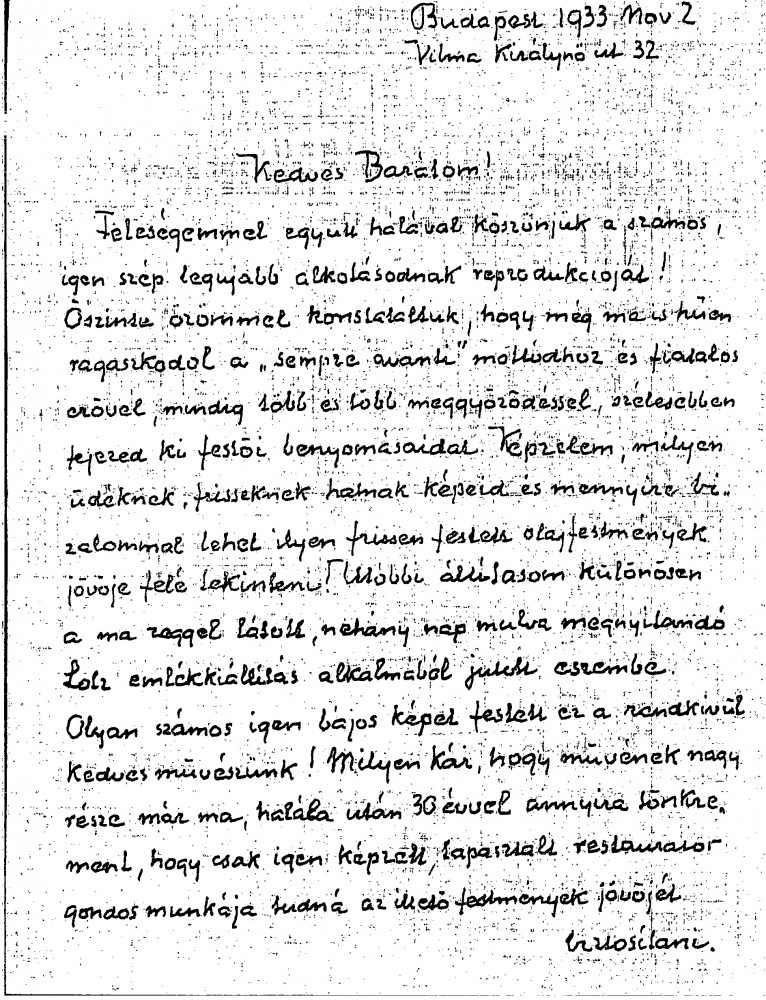 Budapest 1933 Nov 2
Vilma Királynő út 32
Kedves Barátom!
Feleségemmel együtt hálával köszönjuk a számos,
igen szép legujabb alkotásodnak reprodukcióját!
Őszinte örömmel konstatáltuk, hogy még ma is hűen
ragaszkodol a „sempre avanti" mottódhoz és fiatalos
erővel, mindig több és több meggyőződéssel, szélesebben
fejezed ki festői benyomásaidat. Képzelem, milyen
üdéknek, frisseknek hatnak képeid és mennyire bi„
zalommal lehet ilyen frissen festett olajfestmények
jövője felé tekinteni! Utóbbi állitásom különösen
a ma reggel látott, néhány nap mulva megnyitandó
Lotz emlékkiállítás alkalmából jutott eszembe.
Olyan számos igen bájos képet festett ez a rendkivül
kedves művészünk! Milyen kár, hogy művének nagy
része már ma, halála után 30 évvel annyira tönkre„
ment, hogy csak igen képzett, tapasztalt restaurator
gondos munkája tudná az illető festmények jövőjét
biztosítani.